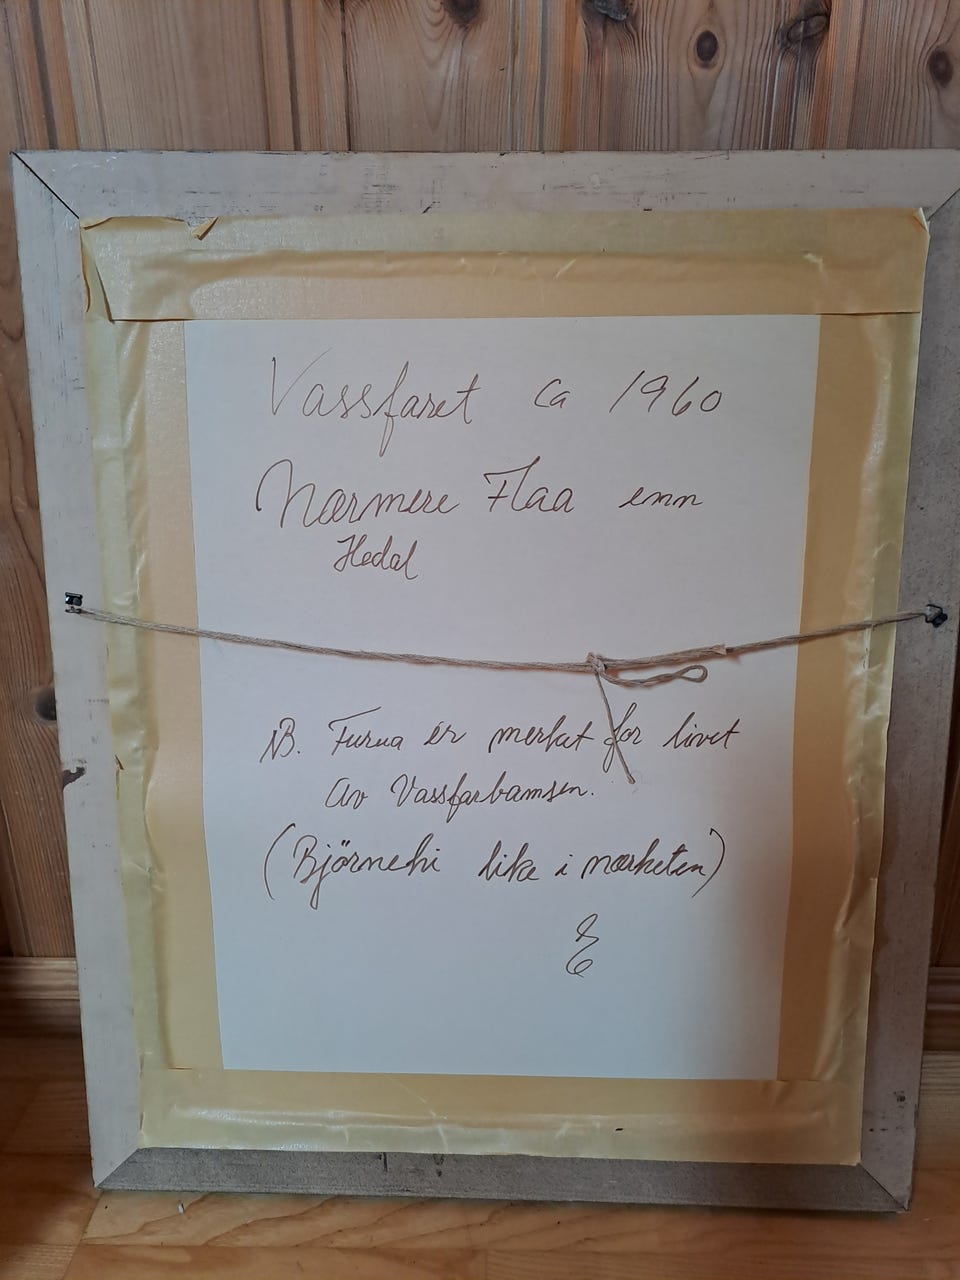 Vassfaret ca 1960
Nærmere Flaa enn
Hedal
NB. Furua er merket for livet
av Vassfarbamsen.
(Björnehi like i nærheten)
E